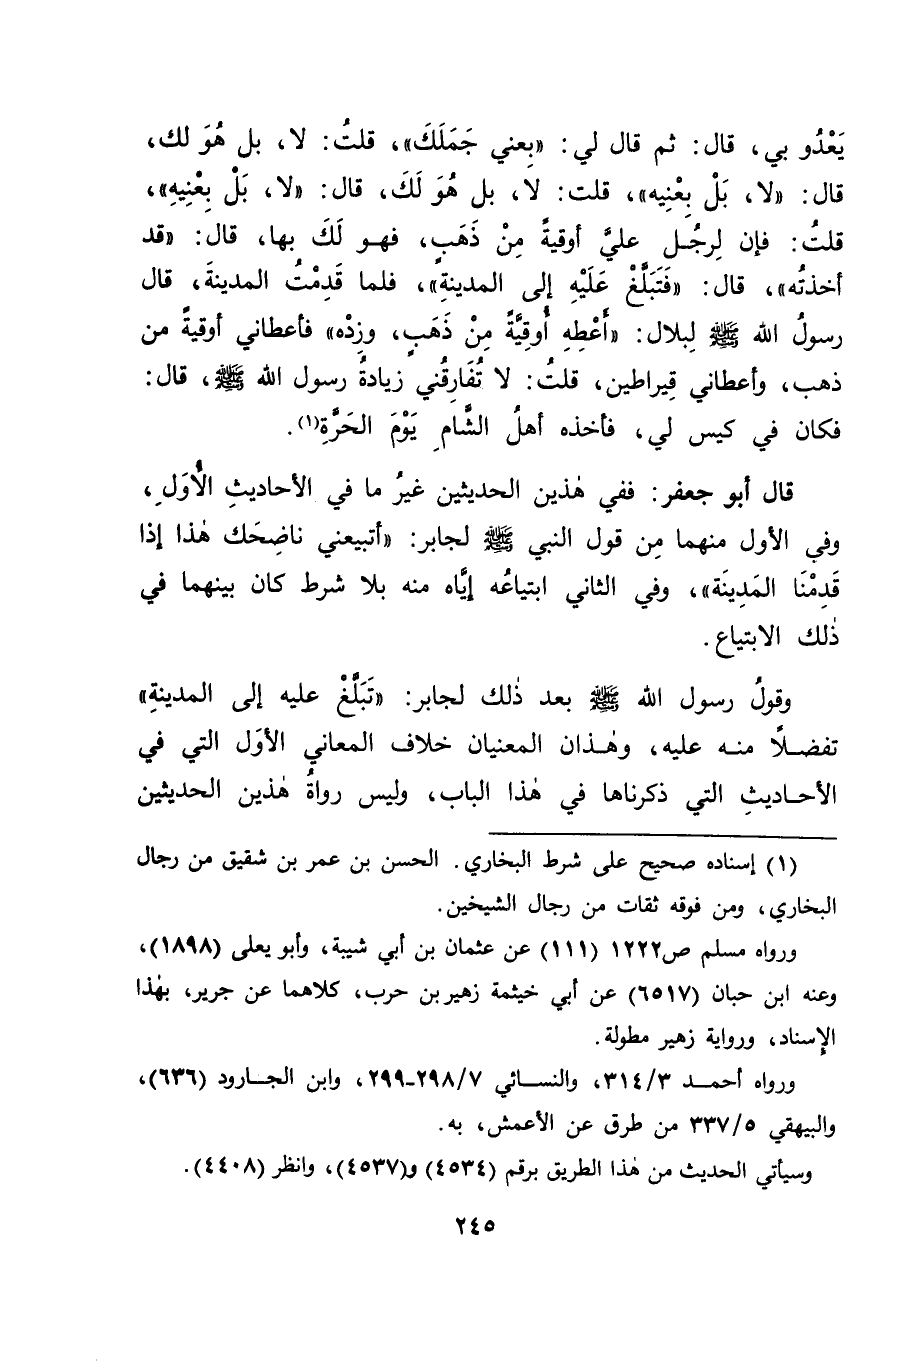 يَعْدُو بي، قال: ثم قال لي: «بِعني جَمَلَكَ»، قلتُ: لا، بل هُوَ لك،
قال: «لا، بَلْ بِعْنِيه»، قلت: لا، بل هُوَ لَكَ، قال: «لا، بَلْ بِعْنِيهِ»،
قلتُ: فإن لِرجُـل عليَّ أوقيةً مِنْ ذَهَبٍ، فهـو لَكَ بها، قال: «قد
أخذتُه»، قال: «فَتَبَلَّغْ عَلَيْهِ إلى المدينةِ»، فلما قَدِمْتُ المدينةَ، قال
رسولُ الله ﷺ لِبلال: «أَعْطِهِ أُوقِيَّةً مِنْ ذَهَبٍ، وزِدْه» فأعطاني أوقيةً من
ذهب، وأعطاني قِيراطين، قلتُ: لا تُفَارِقُني زيادةُ رسول الله ﷺ، قال:
فكان في كيس لي، فأخذه أهلُ الشَّامِ يَوْمَ الحَرَّةِ(١).
قال أبو جعفر: ففي هٰذين الحديثين غيرُ ما في الأحاديثِ الأُوَلِ،
وفي الأول منهما مِن قول النبي ﷺ لجابر: «أتبيعني ناضِحَك هٰذا إذا
قَدِمْنَا المَدِينَة»، وفي الثاني ابتياعُه إيَّاه منه بلا شرط كان بينهما في
ذٰلك الابتياع.
وقولُ رسول الله ﷺ بعد ذٰلك لجابر: «تَبَلَّغْ عليه إلى المدينةِ»
تفضـلًا منـه عليه، وهٰـذان المعنيان خلاف المعاني الأوَل التي في
الأحـاديثِ التي ذكرناها في هٰذا الباب، وليس رواةُ هٰذين الحديثين
(١) إسناده صحيح على شرط البخاري. الحسن بن عمر بن شقيق من رجال
البخاري، ومن فوقه ثقات من رجال الشيخين.
ورواه مسلم ص١٢٢٢ (١١١) عن عثمان بن أبي شيبة، وأبو يعلى (١٨٩٨)،
وعنه ابن حبان (٦٥١٧) عن أبي خيثمة زهير بن حرب، كلاهما عن جرير، بهٰذا
الإسناد، ورواية زهير مطولة.
ورواه أحمـد ٣١٤/٣، والنسـائي ٢٩٨/٧-٢٩٩، وابن الجـارود (٦٣٦)،
والبيهقي ٣٣٧/٥ من طرق عن الأعمش، به.
وسيأتي الحديث من هٰذا الطريق برقم (٤٥٣٤) و(٤٥٣٧)، وانظر (٤٤٠٨).
٢٤٥